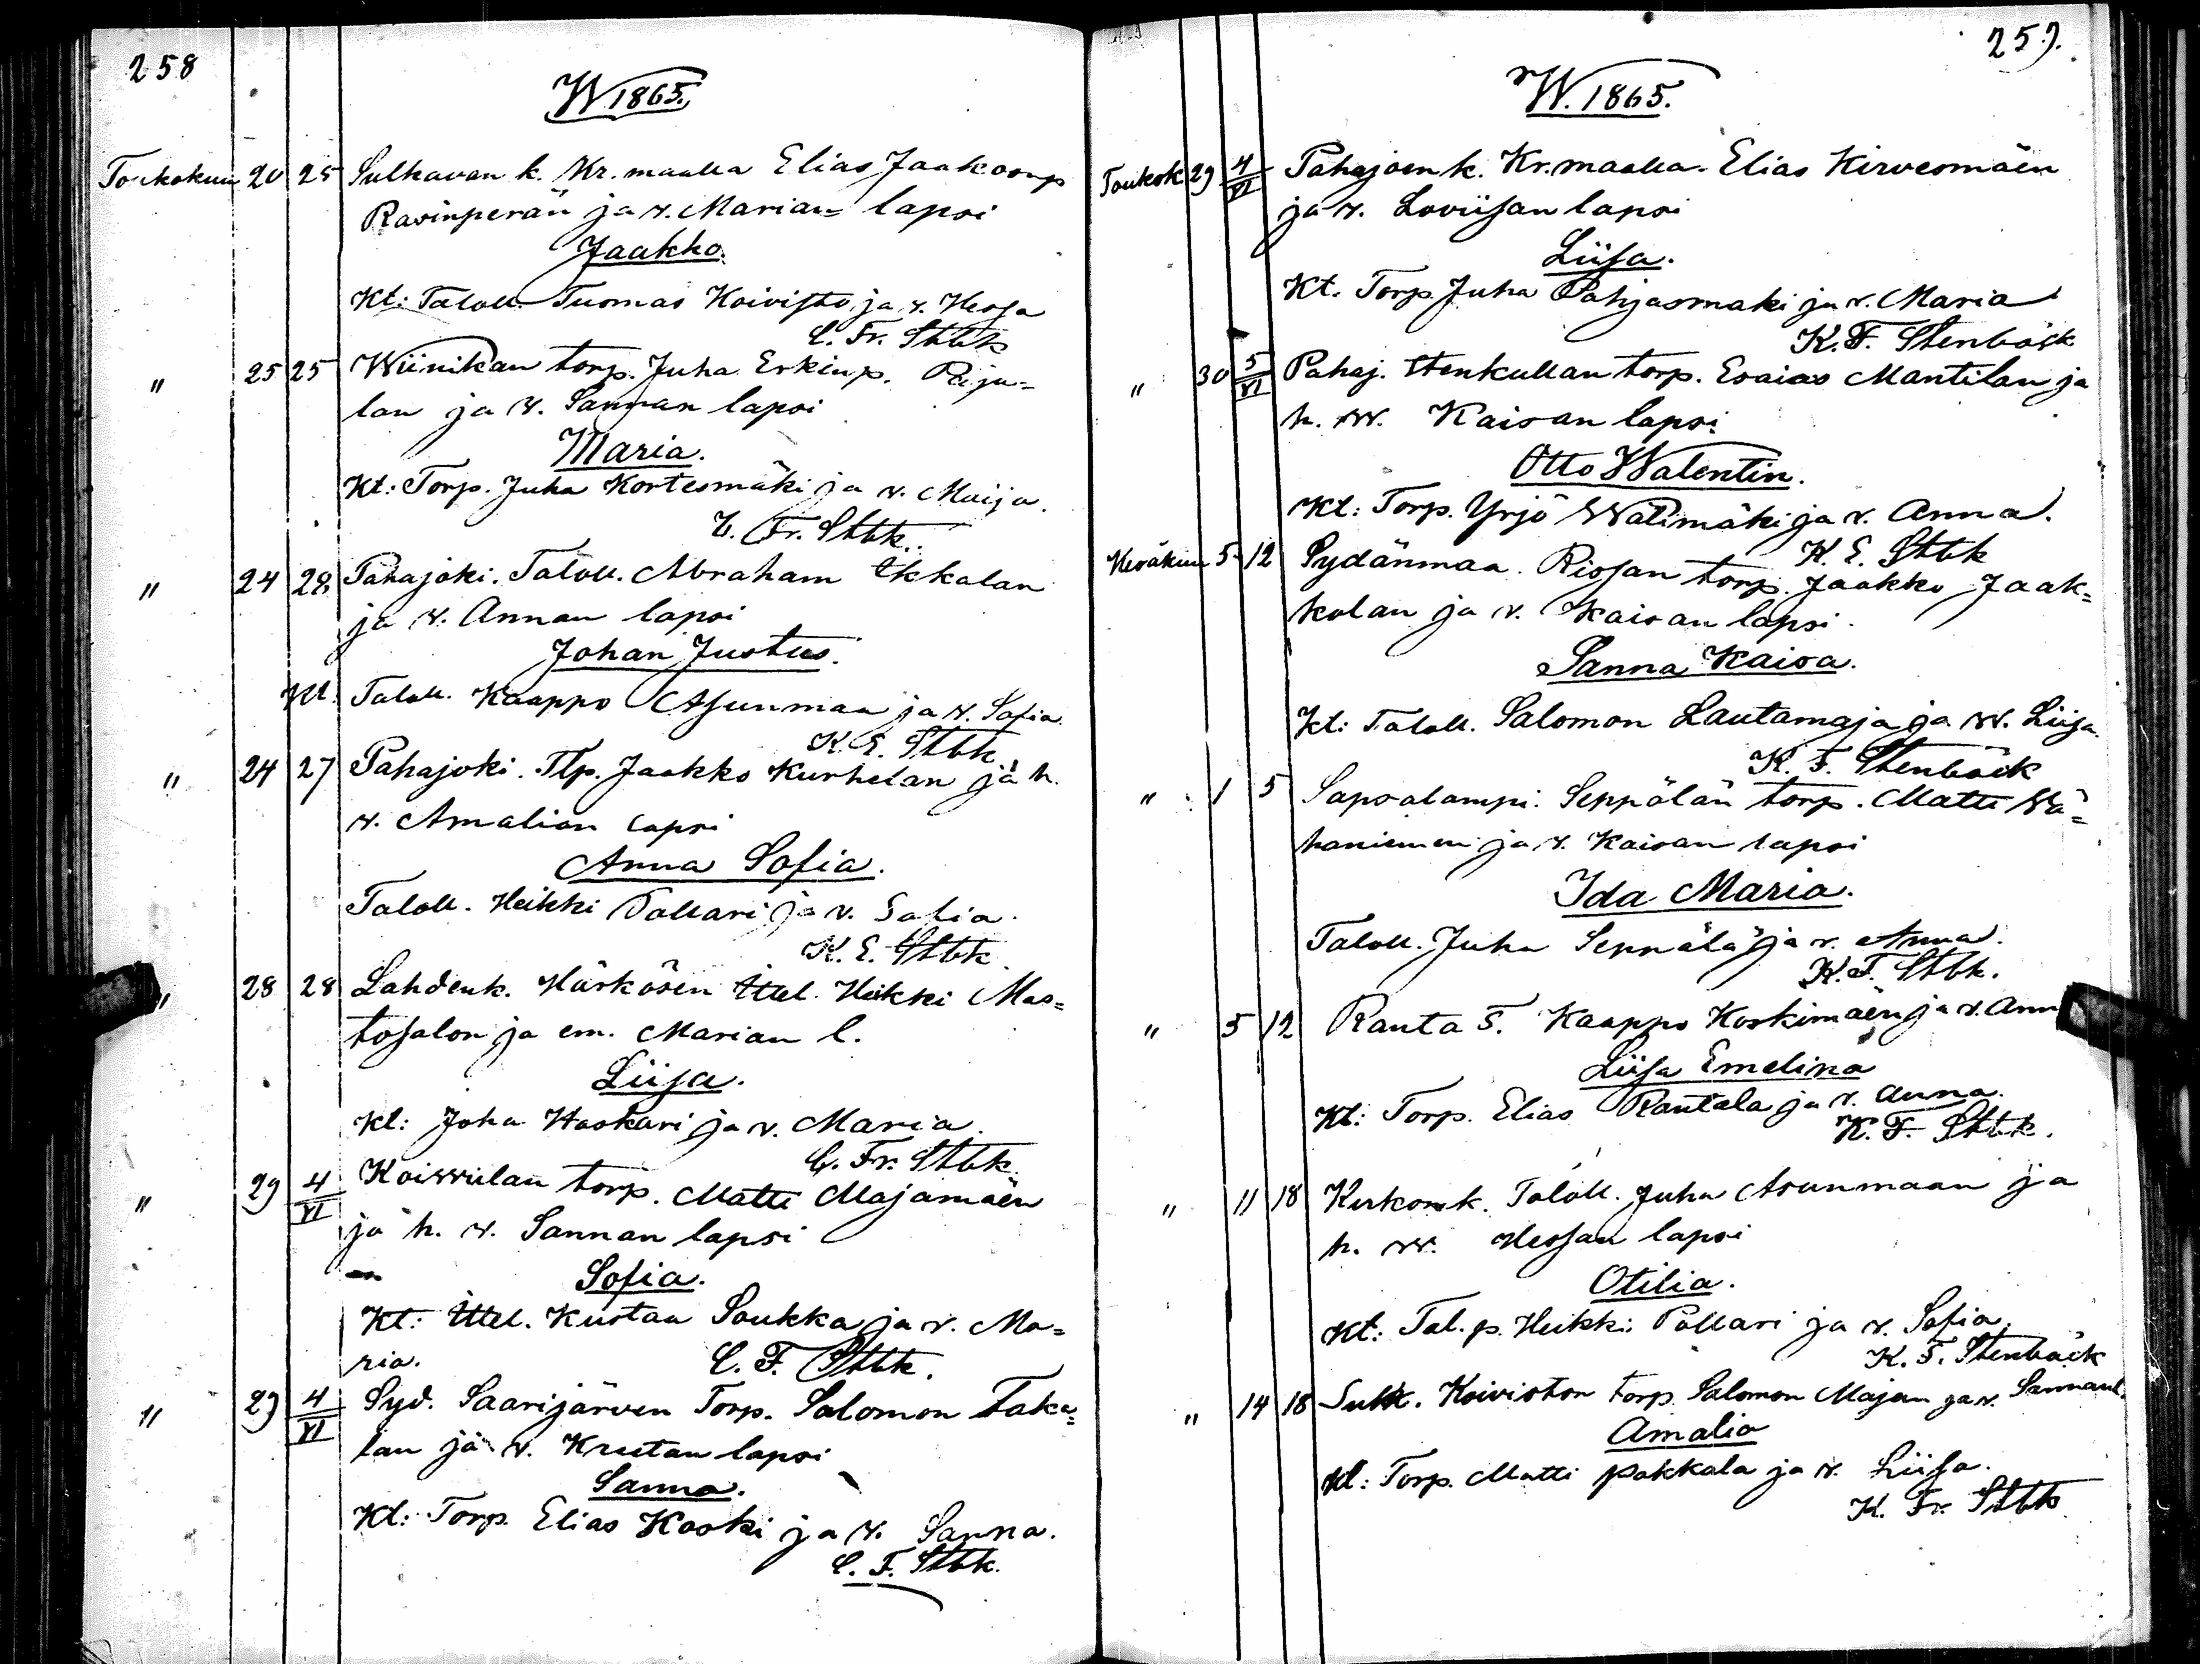 258
W 1865.
Toukokuu 20 25 Sulkavan k. Kr. maalla Elias Jaakonp
Rasinperän ja v. Marian lapsi
Jaakko.
Kt: Taloll. Tuomas Koivisto ja v. Hessa
C. Fr. Stbk
" 25 25 Wiinikan torp. Juha Erkinp. Raju=
lan ja v. Sannan lapsi
Maria.
Kt: Torp. Juha Kortesmäki ja v. Maija.
C. Fr. Stbk.
" 24 28 Pahajoki. Taloll. Abraham Ekkalan
ja v. Annan lapsi
Johan Justus.
Kt. Taloll. Kaappo Asunmaa ja v. Sofia.
K. E. Stbk
" 24 27 Pahajoki. Tlp. Jaakko Kurhelan ja h.
v. Amalian lapsi
Anna Sofia.
Taloll. Heikki Pollari ja v. Sofia.
K. E. Stbk
" 28 28 Lahdenk. Härkösen Ittel. Heikki Mas=
tosalon ja em. Marian l.
Liisa.
Kt: Joha Haskari ja v. Maria.
C. Fr. Stbk
" 29 4/VI Koiwulan torp. Matti Majamäen
ja h. v. Sannan lapsi
Sofia.
Kt: Ittel. Kustaa Soukka ja v. Ma=
ria.
C. F. Stbk.
" 29 4/VI Syd. Saarijärven Torp. Salomon Taka=
lan ja v. Kreetan lapsi
Sanna.
Kt: Torp. Elias Koski ja v. Sanna.
C. F. Stbk.
259.
W. 1865.
Toukok 29 4/VI Pahajoen k. Kr. maalla Elias Kirvesmäen
ja v. Loviisan lapsi
Liisa.
Kt. Torp Juha Pohjasmäki ja v. Maria
K. F. Stenbäck
" 30 5/VI Pahaj. Stenkullan torp. Esaias Mantilan ja
h. w. Kaisan lapsi
Otto Walentin.
Kt: Torp. Yrjö Walimäki ja v. Anna.
K. E. Stbk
Kesäkuu 5 12 Sydänmaa. Rissan torp. Jaakko Jaak=
kolan ja v. Kaisan lapsi.
Sanna Kaisa.
Kt: Taloll. Salomon Lautamaja ja w. Liisa.
K. F. Stenbäck
" 1 5 Sapsalampi. Seppälän torp. Matti Wä=
haniemen ja v. Kaisan lapsi
Ida Maria.
Taloll. Juha Seppälä ja v. Anna.
K. F. Stbk.
" 5 12 Ranta T. Kaappo Koskimäen ja v. Ann
Liisa Emelina
Kt: Torp. Elias Rantala ja v. Anna.
K. F. Stbk.
" 11 18 Kirkonk. Taloll. Juha Asunmaan ja
h. w. Hessan lapsi
Otilia.
Kt: Tal. p. Heikki Pollari ja v. Sofia.
K. F. Stenbäck
" 14 18 Sulk. Koiviston torp. Salomon Majan ja v. Sannan l.
Amalia
Kt: Torp. Matti Pokkala ja v. Liisa.
K. Fr. Stbk